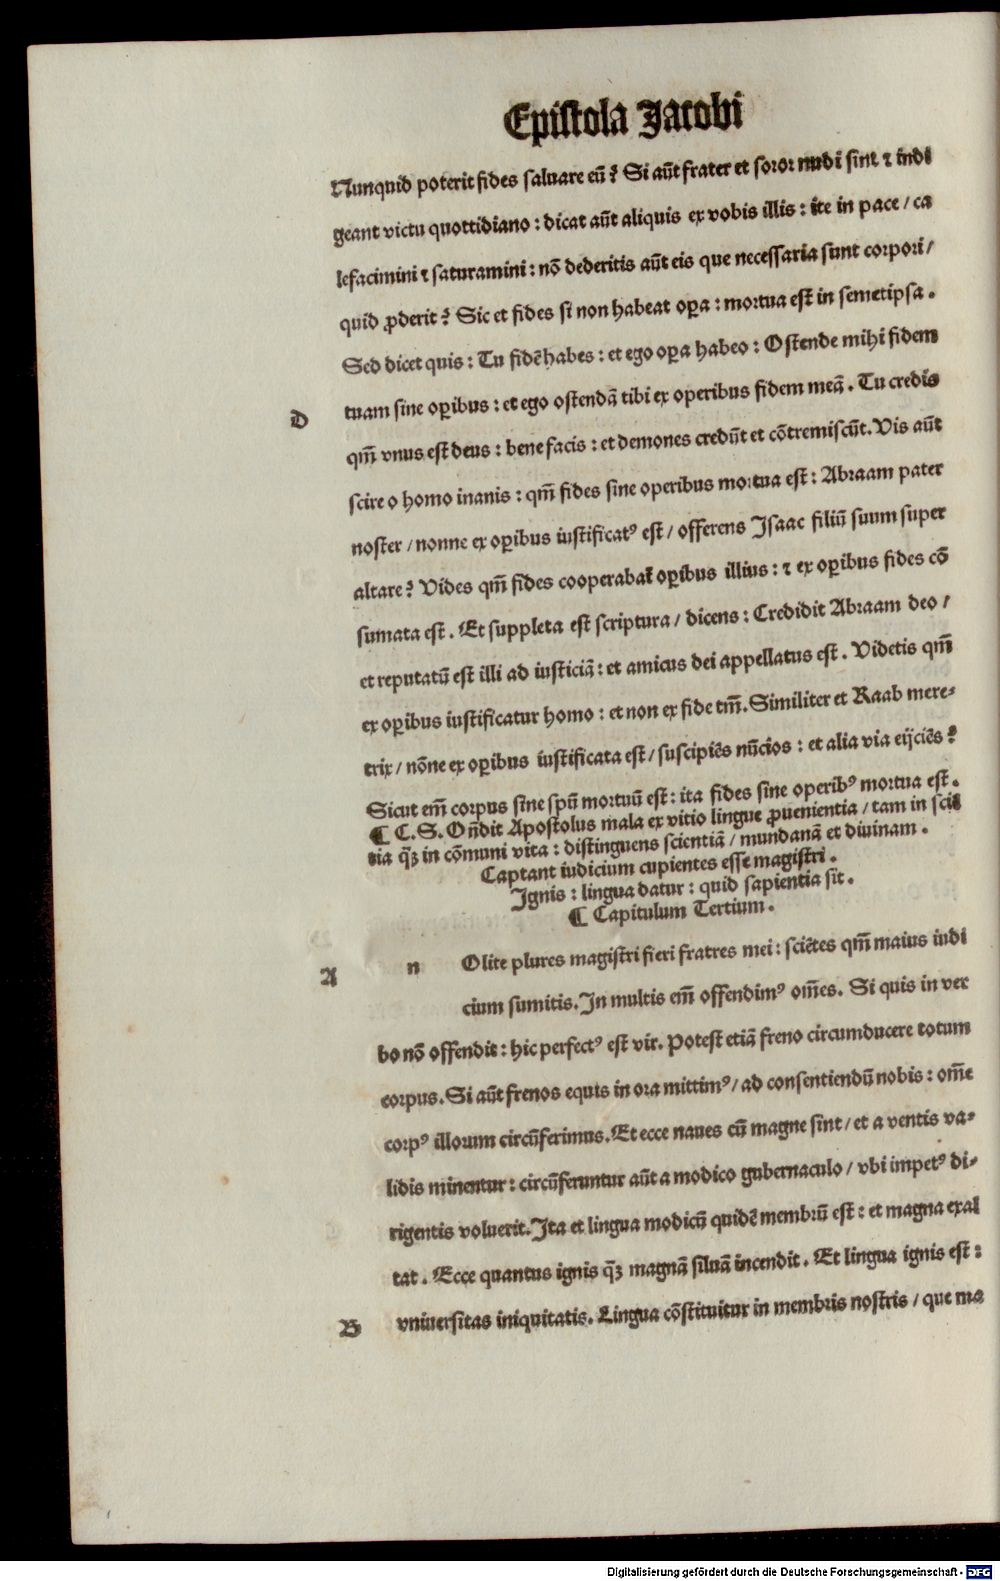 Epistola Jacobi
Nunquid poterit fides saluare eū? Si aūt frater et soror nudi sint ⁊ indi
geant victu quottidiano: dicat aūt aliquis ex vobis illis: ite in pace/ ca
lefacimini ⁊ saturamini: nō dederitis aūt eis que necessaria sunt corpori/
quid ꝓderit? Sic et fides si non habeat oꝑa: mortua est in semetipsa.
Sed dicet quis: Tu fidē habes: et ego oꝑa habeo: Ostende mihi fidem
tuam sine oꝑibus: et ego ostendā tibi ex operibus fidem meā. Tu credis
D
qm̄ vnus est deus: bene facis: et demones credūt et cōtremiscūt. Vis aūt
scire o homo inanis: qm̄ fides sine operibus mortua est: Abraam pater
noster/ nonne ex oꝑibus iustificatꝰ est/ offerens Isaac filiū suum super
altare? Vides qm̄ fides cooperabat̄ oꝑibus illius: ⁊ ex oꝑibus fides cō
sumata est. Et suppleta est scriptura/ dicens: Credidit Abraam deo/
et reputatū est illi ad iusticiā: et amicus dei appellatus est. Videtis qm̄
ex oꝑibus iustificatur homo: et non ex fide tm̄. Similiter et Raab mere-
trix/ nōne ex oꝑibus iustificata est/ suscipiēs nūcios: et alia via eijciēs?
Sicut em̄ corpus sine spū mortuū est: ita fides sine operibꝰ mortua est.
¶ C. S. On̄dit Apostolus mala ex vitio lingue ꝓuenientia/ tam in scië
tia qꝫ̄ in cōmuni vita: distinguens scientiā/ mundanā et diuinam.
Captant iudicium cupientes esse magistri.
Ignis: lingua datur: quid sapientia sit.
¶ Capitulum Tertium.
A
n Olite plures magistri fieri fratres mei: sciētes qm̄ maius iudi
cium sumitis. In multis em̄ offendimꝰ om̄es. Si quis in ver
bo nō offendit: hic perfectꝰ est vir. Potest etiā freno circumducere totum
corpus. Si aūt frenos equis in ora mittimꝰ/ ad consentiendū nobis: om̄e
corpꝰ illorum circūferimus. Et ecce naues cū magne sint/ et a ventis va-
lidis minentur: circūferuntur aūt a modico gubernaculo/ vbi impetꝰ di-
rigentis voluerit. Ita et lingua modicū quidē membrū est: et magna exal
tat. Ecce quantus ignis qꝫ̄ magnā siluā incendit. Et lingua ignis est:
B
vniuersitas iniquitatis. Lingua cōstituitur in membris nostris/ que ma
Digitalisierung gefördert durch die Deutsche Forschungsgemeinschaft - DFG